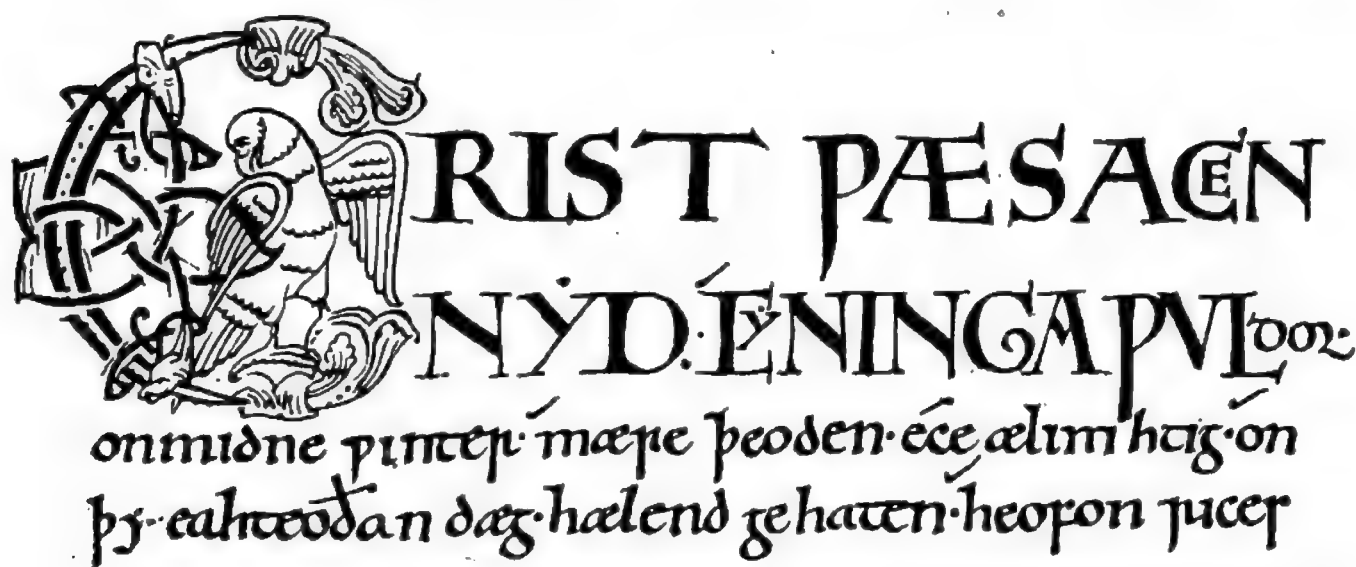 CRIST ǷÆS ACEN
NẎD· CẎNINGA ǷVLdor·
on midne ƿinter· mære þeoden· éce ælimhtig· ón
þẏ· eahteoðan dæg· hælend gehaten· heofon rices